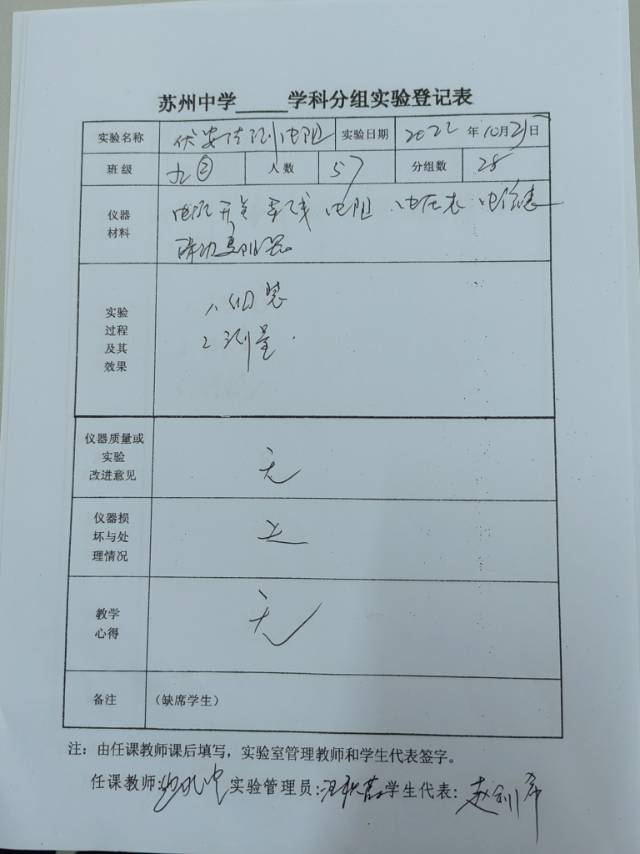 苏州中学_____学科分组实验登记表
实验名称 伏安法测电阻 实验日期 2022年10月25日
班级 九② 人数 57 分组数 28
仪器材料 电源 开关 导线 电阻 电压表 电流表
滑动变阻器
实验过程及其效果 1、组装
2 测量.
仪器质量或实验改进意见 无
仪器损坏与处理情况 无
教学心得 无
备注 (缺席学生)
注：由任课教师课后填写，实验室管理教师和学生代表签字。
任课教师: 实验管理员: 学生代表: 赵